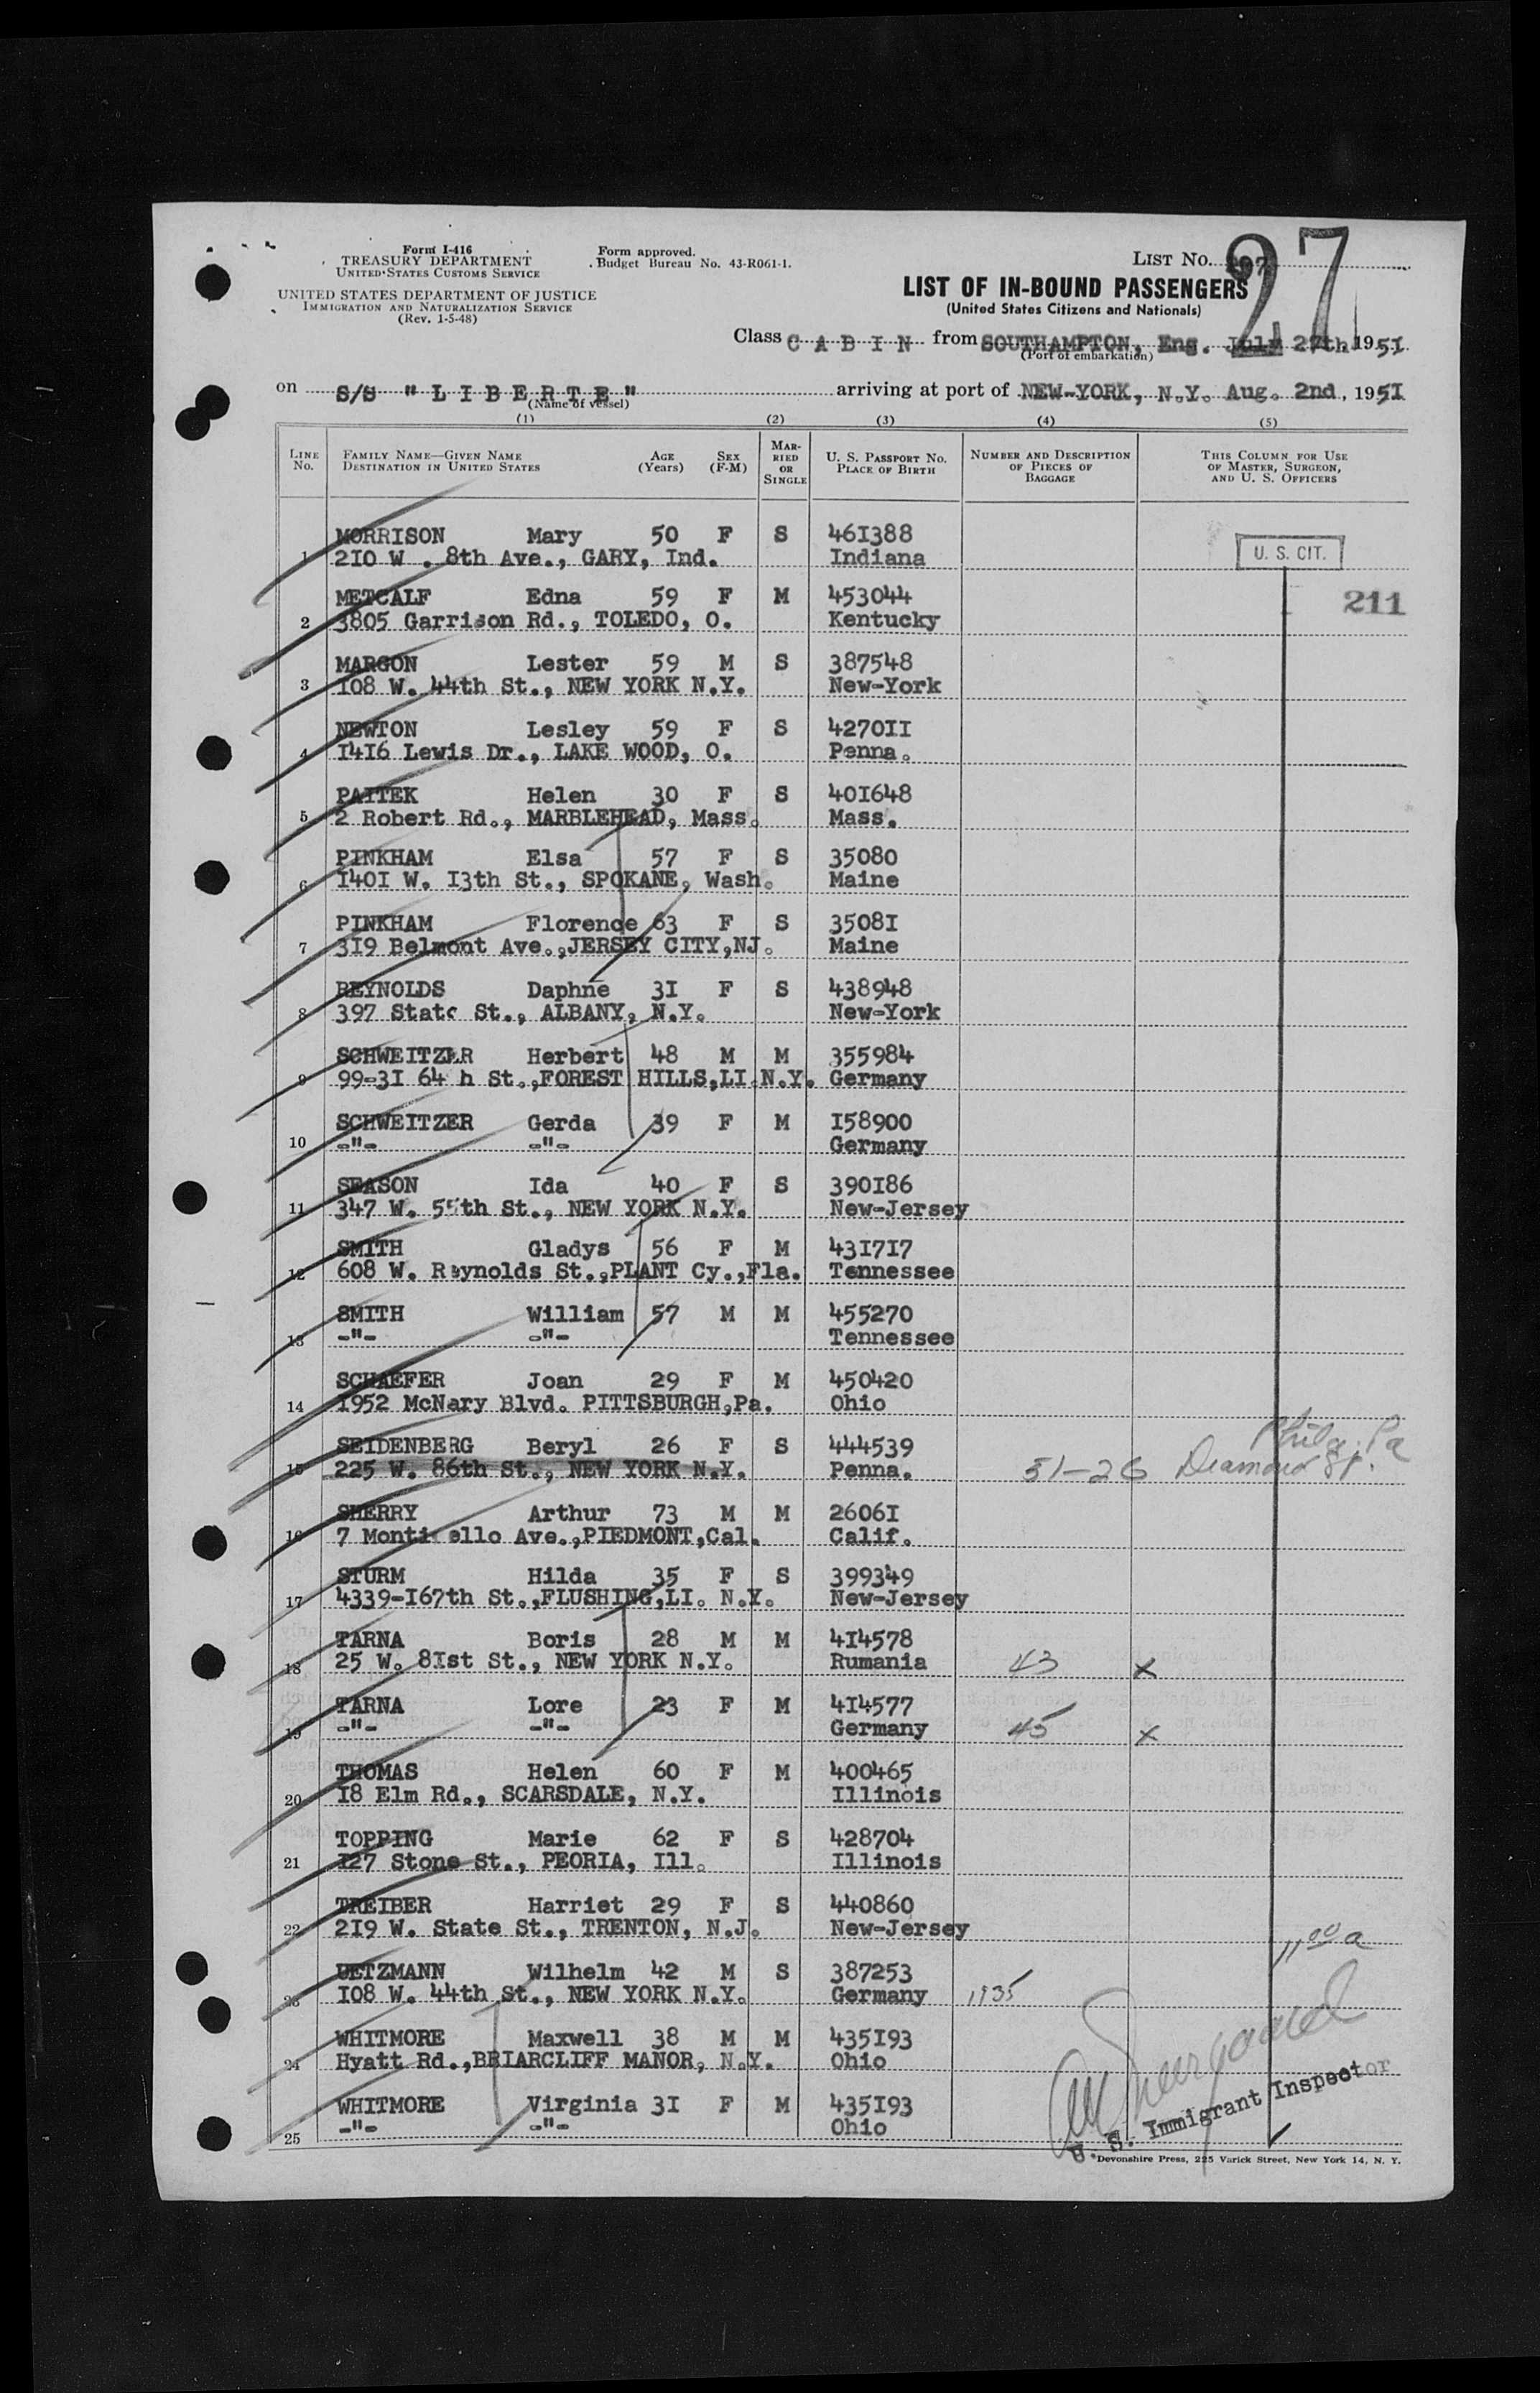 Form I-416
TREASURY DEPARTMENT
UNITED STATES CUSTOMS SERVICE
UNITED STATES DEPARTMENT OF JUSTICE
IMMIGRATION AND NATURALIZATION SERVICE
(Rev. 1-5-48)
Form approved.
Budget Bureau No. 43-R061-1.
LIST NO.
27
LIST OF IN-BOUND PASSENGERS
(United States Citizens and Nationals)
Class C A B I N from SOUTHAMPTON, Eng. July 27th 1951
(Port of embarkation)
on S/S "L I B E R T E" arriving at port of NEW-YORK, N.Y. Aug. 2nd, 1951
(Name of vessel)
(1) (2) (3) (4) (5)
LINE NO. FAMILY NAME—GIVEN NAME DESTINATION IN UNITED STATES AGE (Years) SEX (F-M) MARRIED OR SINGLE U. S. PASSPORT NO. PLACE OF BIRTH NUMBER AND DESCRIPTION OF PIECES OF BAGGAGE THIS COLUMN FOR USE OF MASTER, SURGEON, AND U. S. OFFICERS
MORRISON Mary 50 F S 461388
1 210 W . 8th Ave., GARY, Ind. Indiana U. S. CIT.
METCALF Edna 59 F M 453044 211
2 3805 Garrison Rd., TOLEDO, O. Kentucky
MARGON Lester 59 M S 387548
3 108 W. 44th St., NEW YORK N.Y. New-York
NEWTON Lesley 59 F S 427011
4 1416 Lewis Dr., LAKE WOOD, O. Penna.
PAITEK Helen 30 F S 401648
5 2 Robert Rd., MARBLEHEAD, Mass. Mass.
PINKHAM Elsa 57 F S 35080
6 1401 W. 13th St., SPOKANE, Wash. Maine
PINKHAM Florence 63 F S 35081
7 319 Belmont Ave.,JERSEY CITY,NJ. Maine
REYNOLDS Daphne 31 F S 438948
8 397 State St., ALBANY, N.Y. New-York
SCHWEITZER Herbert 48 M M 355984
9 99-31 64 h St.,FOREST HILLS,LI.N.Y. Germany
SCHWEITZER Gerda 39 F M 158900
10 -"- -"- Germany
SEASON Ida 40 F S 390186
11 347 W. 55th St., NEW YORK N.Y. New-Jersey
SMITH Gladys 56 F M 431717
12 608 W. Reynolds St.,PLANT Cy.,Fla. Tennessee
SMITH William 57 M M 455270
13 -"- -"- Tennessee
SCHAEFER Joan 29 F M 450420
14 1952 McNary Blvd. PITTSBURGH,Pa. Ohio
SEIDENBERG Beryl 26 F S 444539 Phila. Pa
15 225 W. 86th St., NEW YORK N.Y. Penna. 51-26 Diamond St.
SHERRY Arthur 73 M M 26061
16 7 Monticello Ave.,PIEDMONT,Cal. Calif.
STURM Hilda 35 F S 399349
17 4339-167th St.,FLUSHING,LI. N.Y. New-Jersey
TARNA Boris 28 M M 414578
18 25 W. 81st St., NEW YORK N.Y. Rumania 43 x
TARNA Lore 23 F M 414577
19 -"- -"- Germany 45 x
THOMAS Helen 60 F M 400465
20 18 Elm Rd., SCARSDALE, N.Y. Illinois
TOPPING Marie 62 F S 428704
21 127 Stone St., PEORIA, Ill. Illinois
TREIBER Harriet 29 F S 440860
22 219 W. State St., TRENTON, N.J. New-Jersey 11 00 a
UETZMANN Wilhelm 42 M S 387253
23 108 W. 44th St., NEW YORK N.Y. Germany 1935
WHITMORE Maxwell 38 M M 435193
24 Hyatt Rd.,BRIARCLIFF MANOR, N.Y. Ohio
WHITMORE Virginia 31 F M 435193
25 -"- -"- Ohio
U. S. Immigrant Inspector
Devonshire Press, 225 Varick Street, New York 14, N. Y.